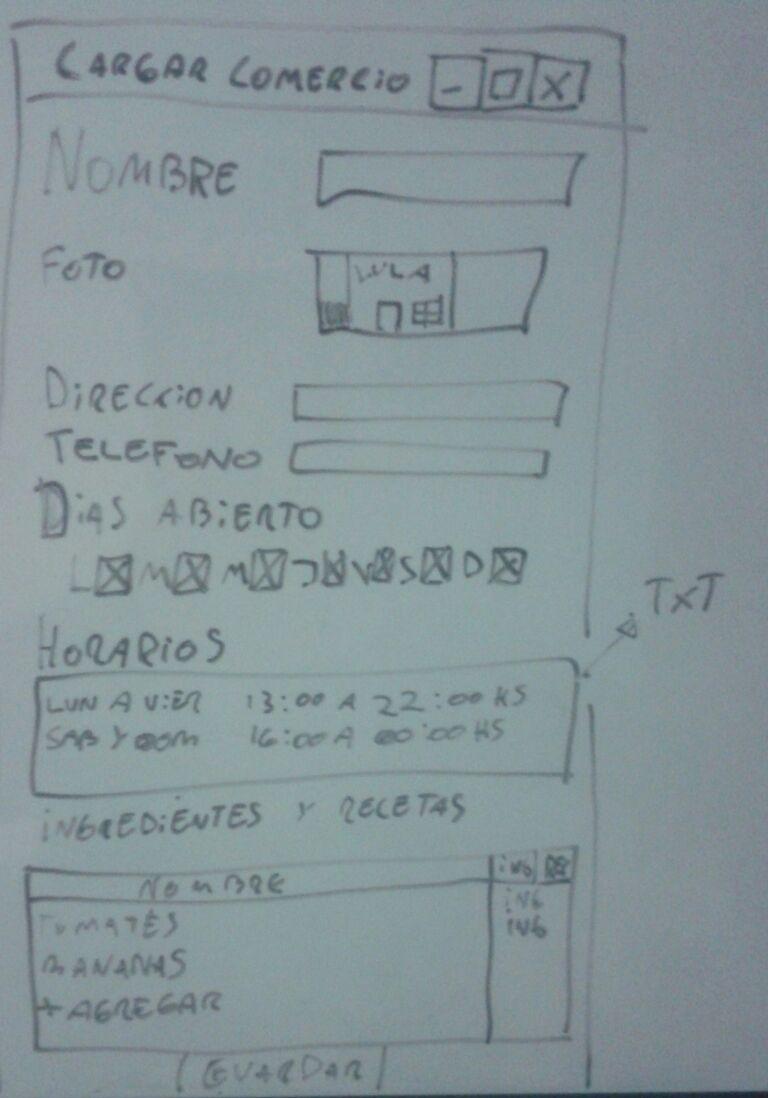 CARGAR COMERCIO - X
NOMBRE
FOTO
DIRECCION
TELEFONO
DIAS ABIERTO
L M M J V S D
HORARIOS
TXT
LUN A VIER 13:00 A 22:00 HS
SAB Y DOM 16:00 A 00:00 HS
INGREDIENTES Y RECETAS
NOMBRE ING REC
TOMATES ING
BANANAS ING
+ AGREGAR
GUARDAR